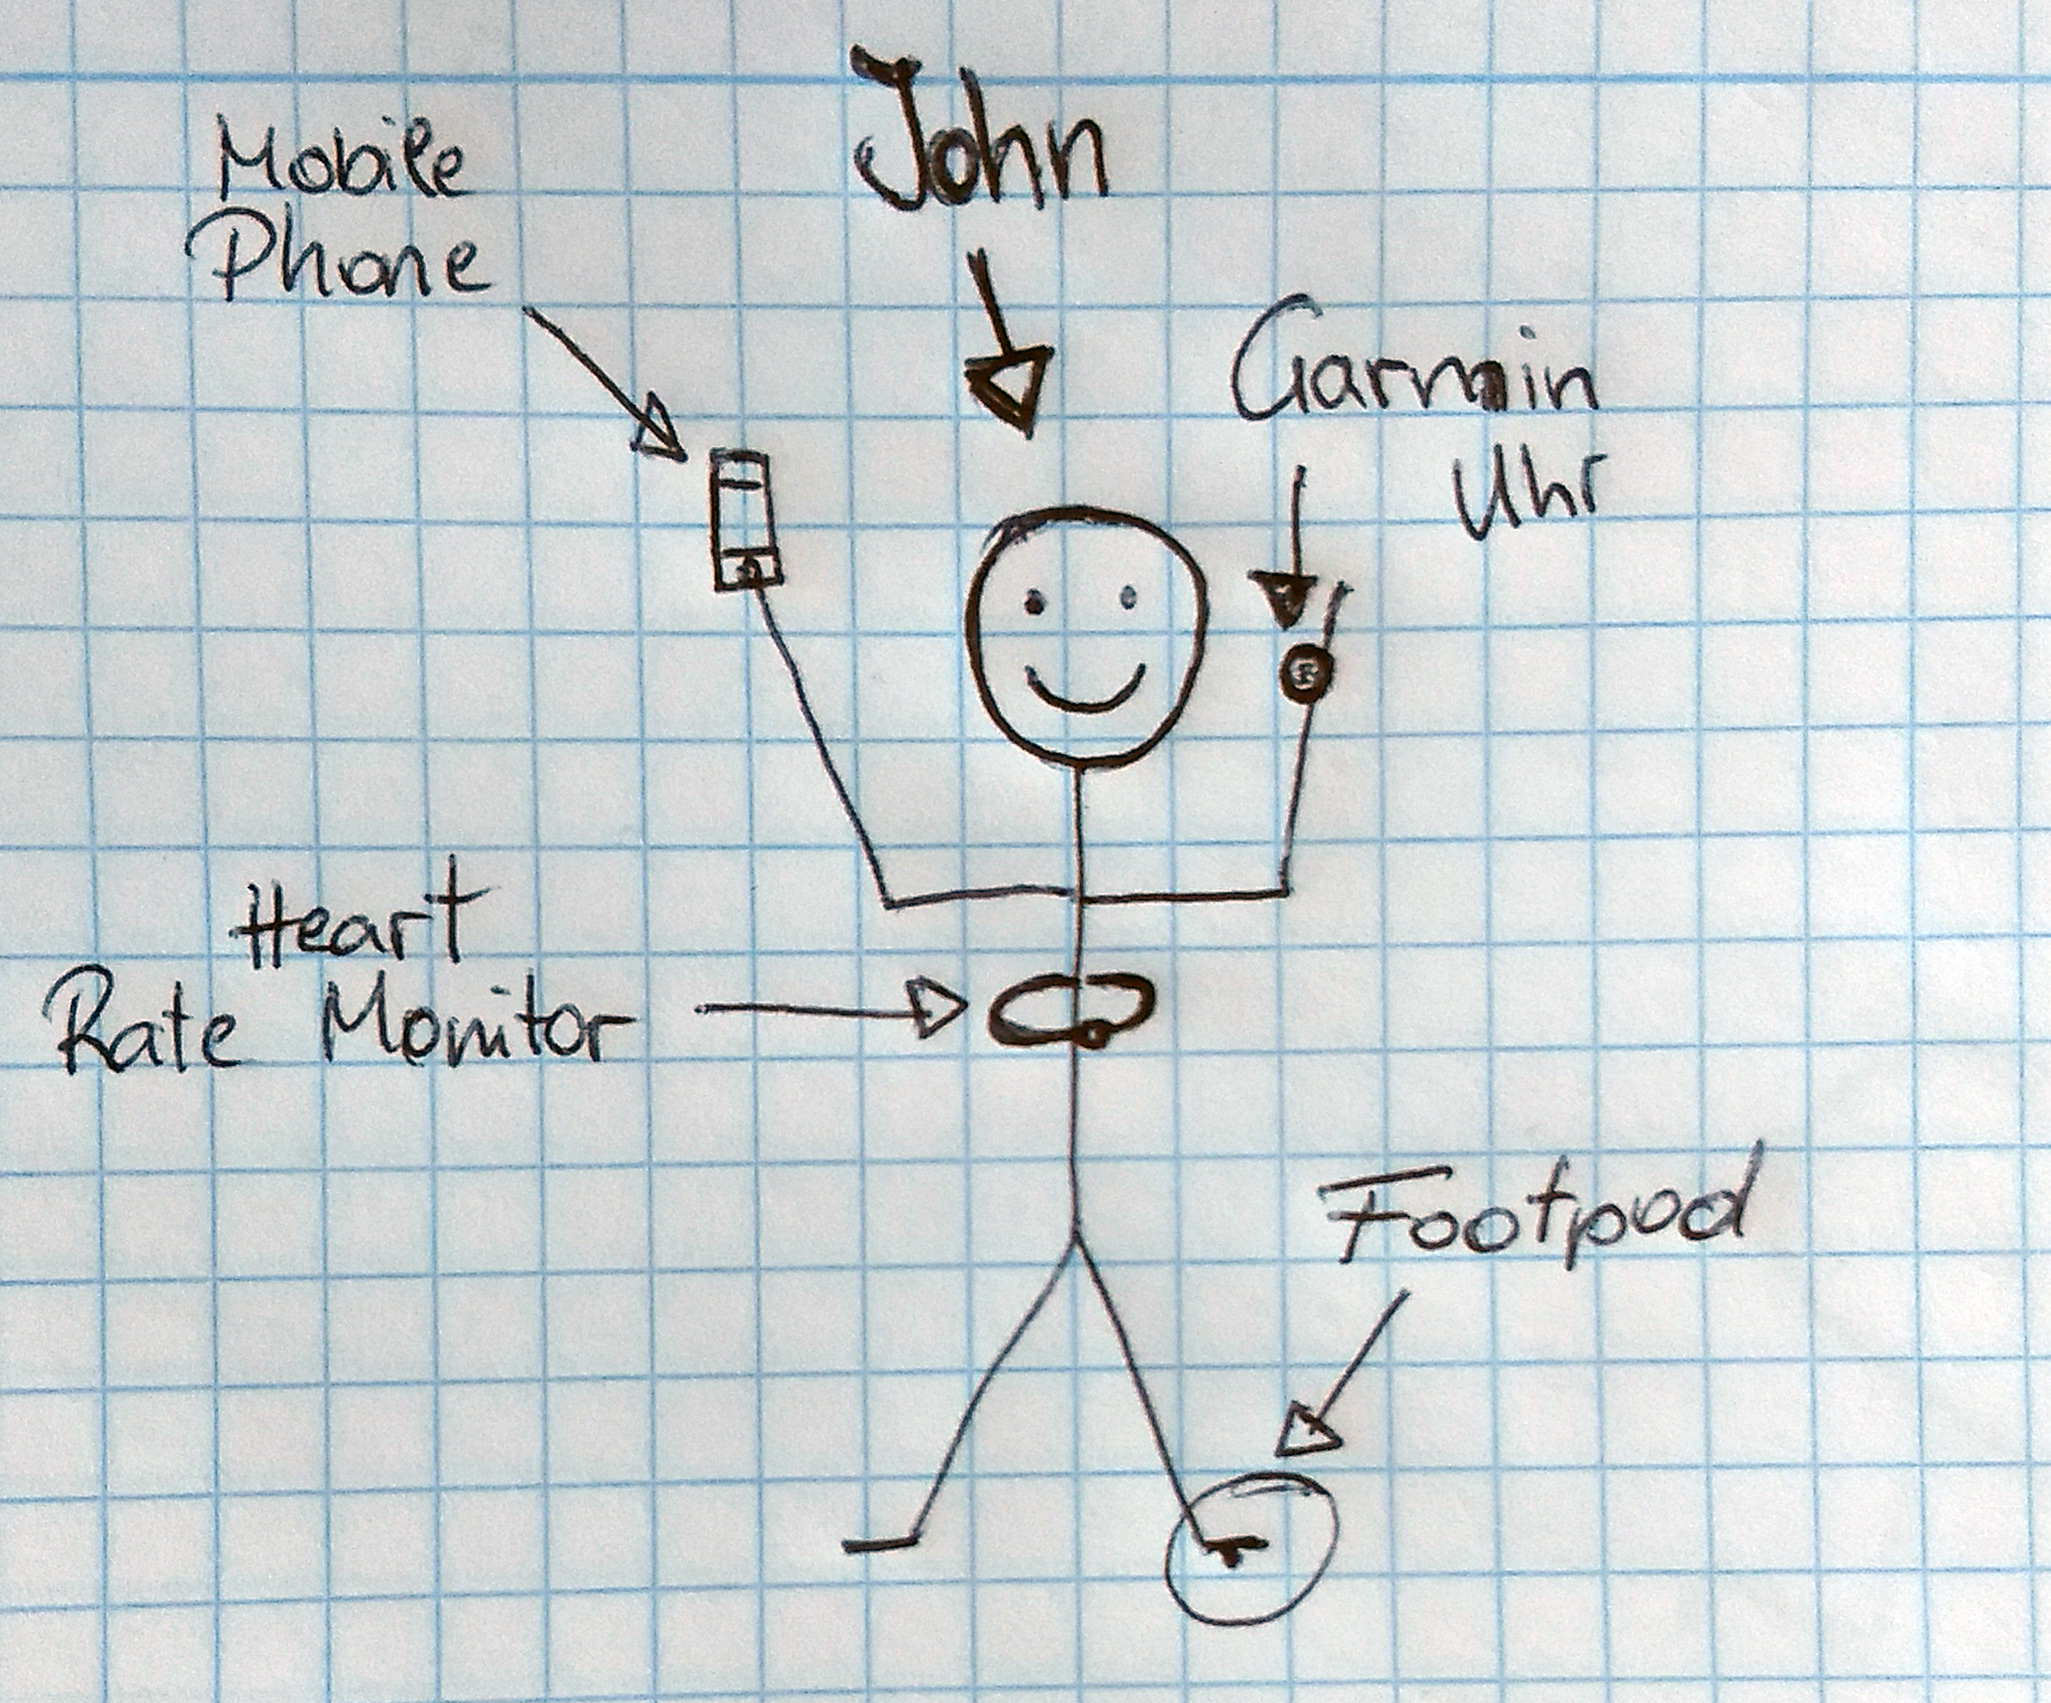 John
Mobile
Phone
Garmin
Uhr
Heart
Rate Monitor
Footpod